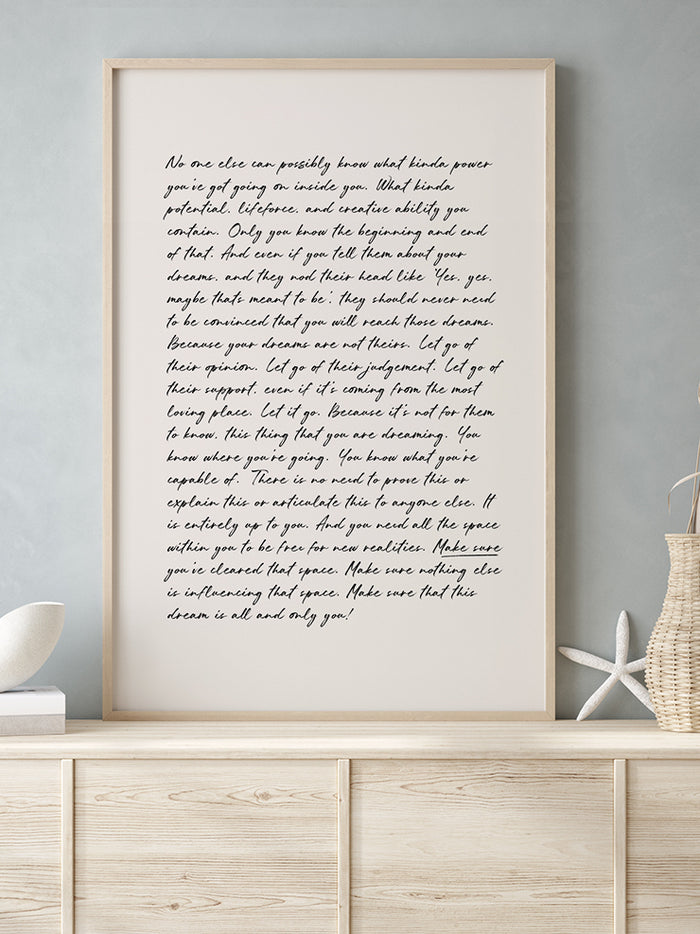 No one else can possibly know what kinda power
you've got going on inside you. What kinda
potential, lifeforce, and creative ability you
contain. Only you know the beginning and end
of that. And even if you tell them about your
dreams, and they nod their head like 'Yes, yes,
maybe thats meant to be', they should never need
to be convinced that you will reach those dreams.
Because your dreams are not theirs. Let go of
their opinion. Let go of their judgement. Let go of
their support, even if it's coming from the most
loving place. Let it go. Because it's not for them
to know, this thing that you are dreaming. You
know where you're going. You know what you're
capable of. There is no need to prove this or
explain this or articulate this to anyone else. It
is entirely up to you. And you need all the space
within you to be free for new realities. Make sure
you've cleared that space. Make sure nothing else
is influencing that space. Make sure that this
dream is all and only you!